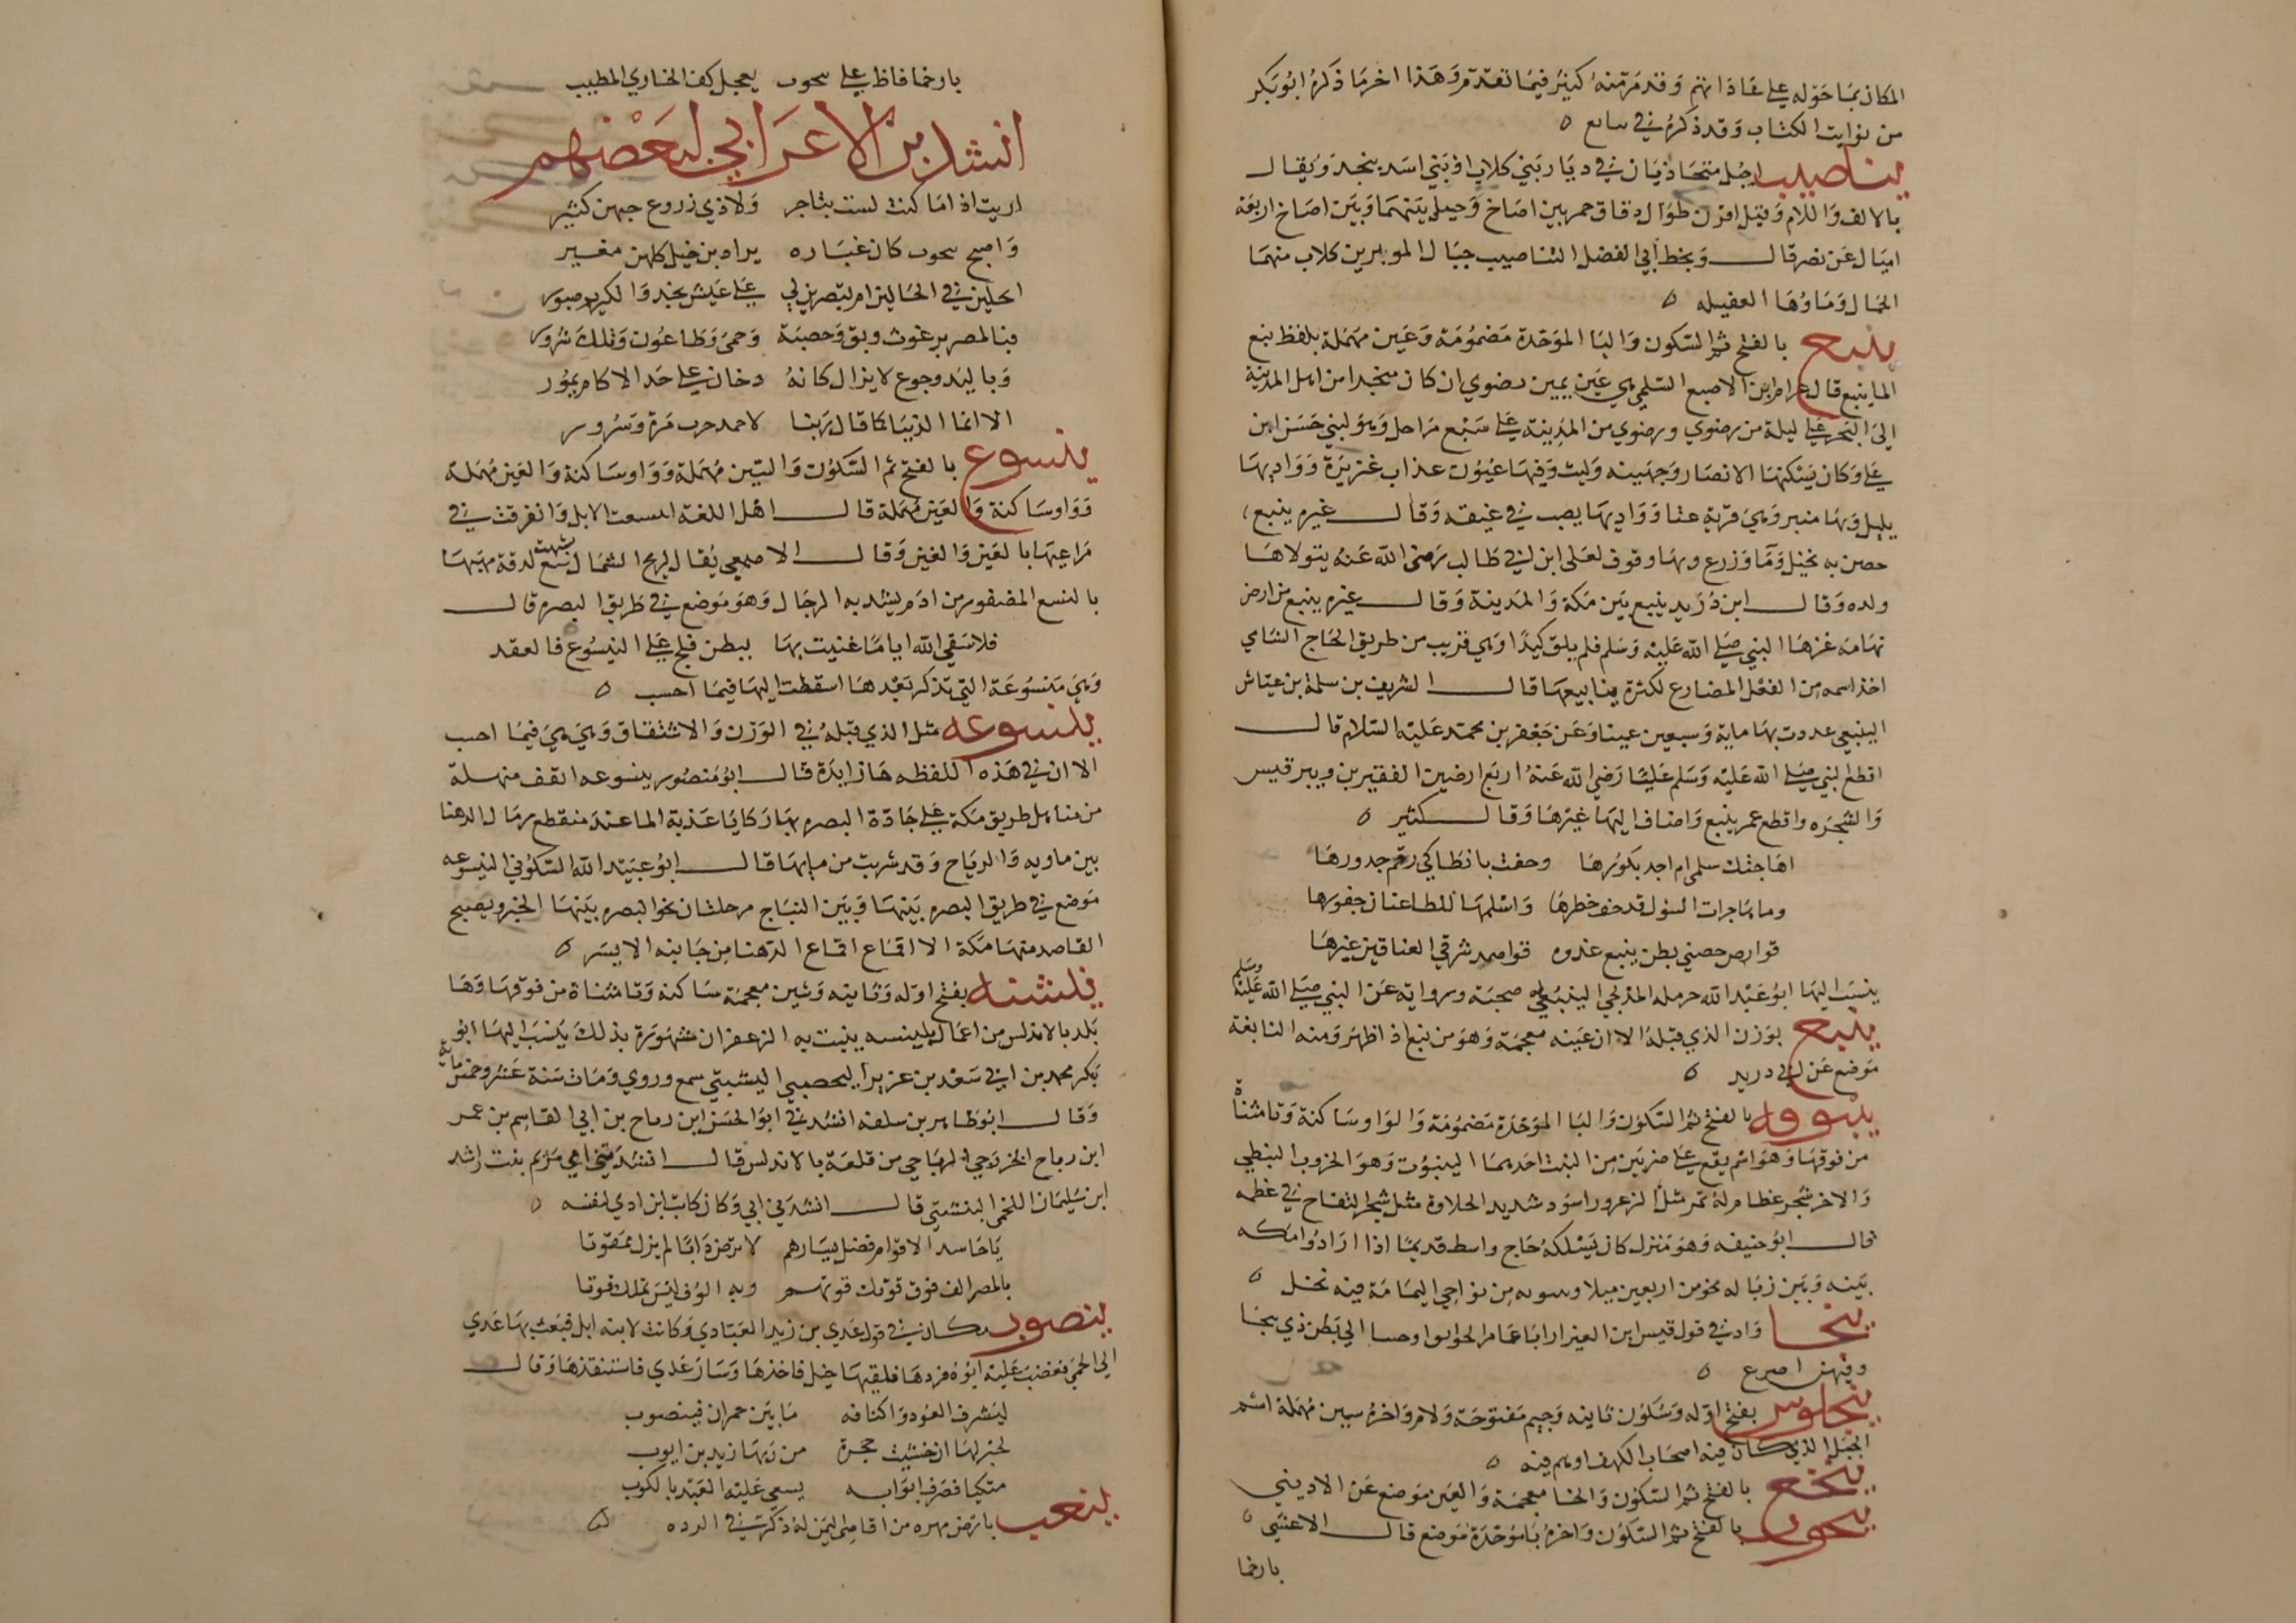 المكان بما حوله على عاداتهم وقد مر منه كثير فيما تقدم وهذا اخر ما ذكره ابو بكر
من نوابت الكتاب وقد ذكره في
يناصيب اجبل متحاذيات في ديار بني كلاب او بني اسد بنجد ويقال
بالالف واللام وقيل اقرن طوال دقاق حمر بين اضاخ وجبلة بينهما وبين اضاخ اربعة
اميال عن نصر قال وبخط ابي الفضل اليناصيب جبال لوبر بن كلاب منهما
الحمال وماوها العقيله
ينبع بالفتح ثم السكون والبا الموحدة مضمومة وعين مهملة بلفظ ينبع
الما ينبع قال عرام بن الاصبع السلمي هي عن يمين رضوي لمن كان منحدرا من اهل المدينة
الى البحر على ليلة من رضوي ورضوي من المدينة على سبع مراحل وهو لبني حسن ابن
علي وكان يسكنها الانصار وجهينه وليث وفيها عيون عذاب غزيرة وواديها
يليل وبها منبر وهي قرية غنا وواديها يصب في غيقه وقال غيره ينبع
حصن به نخيل وما وزرع وبها وقوف لعلي ابن ابي طالب رضى الله عنه يتولاها
ولده وقال ابن دريد ينبع بين مكة والمدينة وقال غيره ينبع من ارض
تهامه غزاها النبي صلى الله عليه وسلم فلم يلق كيدا وهي قريب من طريق الحاج الشامي
اخذ اسمه من الفعل المضارع لكثرة ينابيعها قال الشريف بن سلمة بن عياش
الينبعي عددت بها ماية وسبعين عينا وعن جعفر بن محمد عليه السلام قال
اقطع النبي صلى الله عليه وسلم عليا رضي الله عنه اربع ارضين الفقيرين وبير قيس
والشجره واقطع عمر ينبع واضاف اليها غيرها وقال كثير
اهاجتك سلمى ام اجد بكورها وحفت بانطاكي رقم خدورها
وما هاجرات السول قد حف خطرها واسلمها للظاعنات جفورها
قوارض حصني بطن ينبع غدوه قواصد شرقي العناقين عيرها
ينسب اليها ابو عبد الله حرمله المدلجي الينبعي له صحبة وروايه عن النبي صلى الله عليه وسلم
ينبع بوزن الذي قبله الا ان عينه معجمة وهو من نبغ اذا ظهر ومنه النابغة
موضع عن ابي دريد
ينبوته بالفتح ثم السكون والبا الموحدة مضمومة والواو ساكنة وتا مثناة
من فوقها وهو اسم يقع على ضربين من النبت احدهما الينبوت وهو الخروب النبطي
والاخر شجر عظام له ثمر مثل الزعرور اسود شديد الحلاوة مثل شجر التفاح في عظمه
قال ابو حنيفه وهو منزل كان يسلكه حاج واسط قديما اذا ارادوا مكه
بينه وبين زباله نحو من اربعين ميلا من نواحي اليمامة فيه نخل
ينجا واد في قول قيس ابن العيزارا ابا عامر الى بطن ذي ينجا
وفيهن امرع
ينجلوس بفتح اوله وسكون ثانيه وجيم مفتوحة ولام واخره سين مهملة اسم
الجبل الذي كان فيه اصحاب الكهف اوهم فيه
ينخع بالفتح ثم السكون والخا معجمة والعين موضع عن الاديبي
ينخوب بالفتح ثم السكون واخره با موحدة موضع قال الاعشى
يا رخما
يا رخما قاظ على ينحوب يعجل كف الخاري المطيب
انشد بن الاعرابي لبعضهم
اريت اذا ما كنت لست بتاجر ولا ذي زروع حبهن كثير
واصبح ينخوب كان غباره براذين خيل كلهن مغير
اتجلين في الحالين ام تصبرين لي على عيش نجد والكريم صبور
فبالمصر برغوث وبق وحصبة وحمى وطاعون وتلك شرور
وبالبدو جوع لا يزال كانه دخان على حد الاكام يمور
الا انما الدنيا كما قال ربنا لاحمد حزن مرة وسرور
ينسوع بالفتح ثم السكون والسين مهملة وواو ساكنة والعين مهملة
وواو ساكنة والعين مهملة قال اهل اللغة انتسعت الابل وانفرقت في
مراعيها بالعين والغين وقال الاصمعي يقال لريح الشمال نسع شبهت لدقة مهبها
بالنسع المضفور من ادم يشد به الرحال وهو موضع في طريق البصره قال
فلا سقى الله اياما غنيت بها ببطن فلج على الينسوع فالعقد
وهي منسوعة التي تذكر بعدها اسقطت اليها فيما احسب
ينسوعه مثل الذي قبله في الوزن والاشتقاق وهي هي فيما احب
الا ان في هذه اللفظه ها زايدة قال ابو منصور ينسوعه القف منهلة
من مناهل طريق مكة على جادة البصره بها ركايا عذبة الما عند منقطع رمال الدهنا
بين ماويه والرياح وقد شربت من مايها قال ابو عبيد الله السكوني الينسوعه
موضع في طريق البصره بينها وبين النباج مرحلتان نحو البصره بينها الخبر ويصبح
القاصد منها مكة الا القاع اقماع الدهنا من جانبه الايسر
ينشته بفتح اوله وثانيه وشين معجمة ساكنة وتا مثناة من فوقها وها
بلد بالاندلس من اعمال بلنسه ينبت به الزعفران مشهورة بذلك ينسب اليها ابو
بكر محمد بن ابي سعد بن عزيز اليحصبي الينشتي سمع وروي ومات سنة عشر وخمس ماية
وقال ابو طاهر بن سلفه انشدني ابو الحسن ابن رماح بن ابي القاسم بن عمر
ابن رباح الخزرجي الرباحي من قلعة بالاندلس قال انشدتني امي مريم بنت راشد
ابن سليمان اللخمي الينشتي قال انشدني ابي وكان كاتب ابن ادي لنفسه
يا حاسد الاقوام فضل يسارهم لا ترض دابا لم يزل ممقوتا
بالمصر الف فوق قوتك قوتهم وبه الوف ليس تملك قوتا
ينصوب مكان في قول عدي بن زيد العبادي وكانت لابنه ابل فبعث بها عدي
الى الحمى فغضب عليه ابوه فردها فلقيها خيل فاخذها وسار عدي فاستنقذها وقال
ليشرف العود واكنافه ما بين حمران فينصوب
لخير لها ان خشيت حجرة من ربها زيد بن ايوب
متكيا فصرف ابوابه يسعى عليه العبد بالكوب
ينعب بارض مهره من اقاصى اليمن له ذكر في الرده